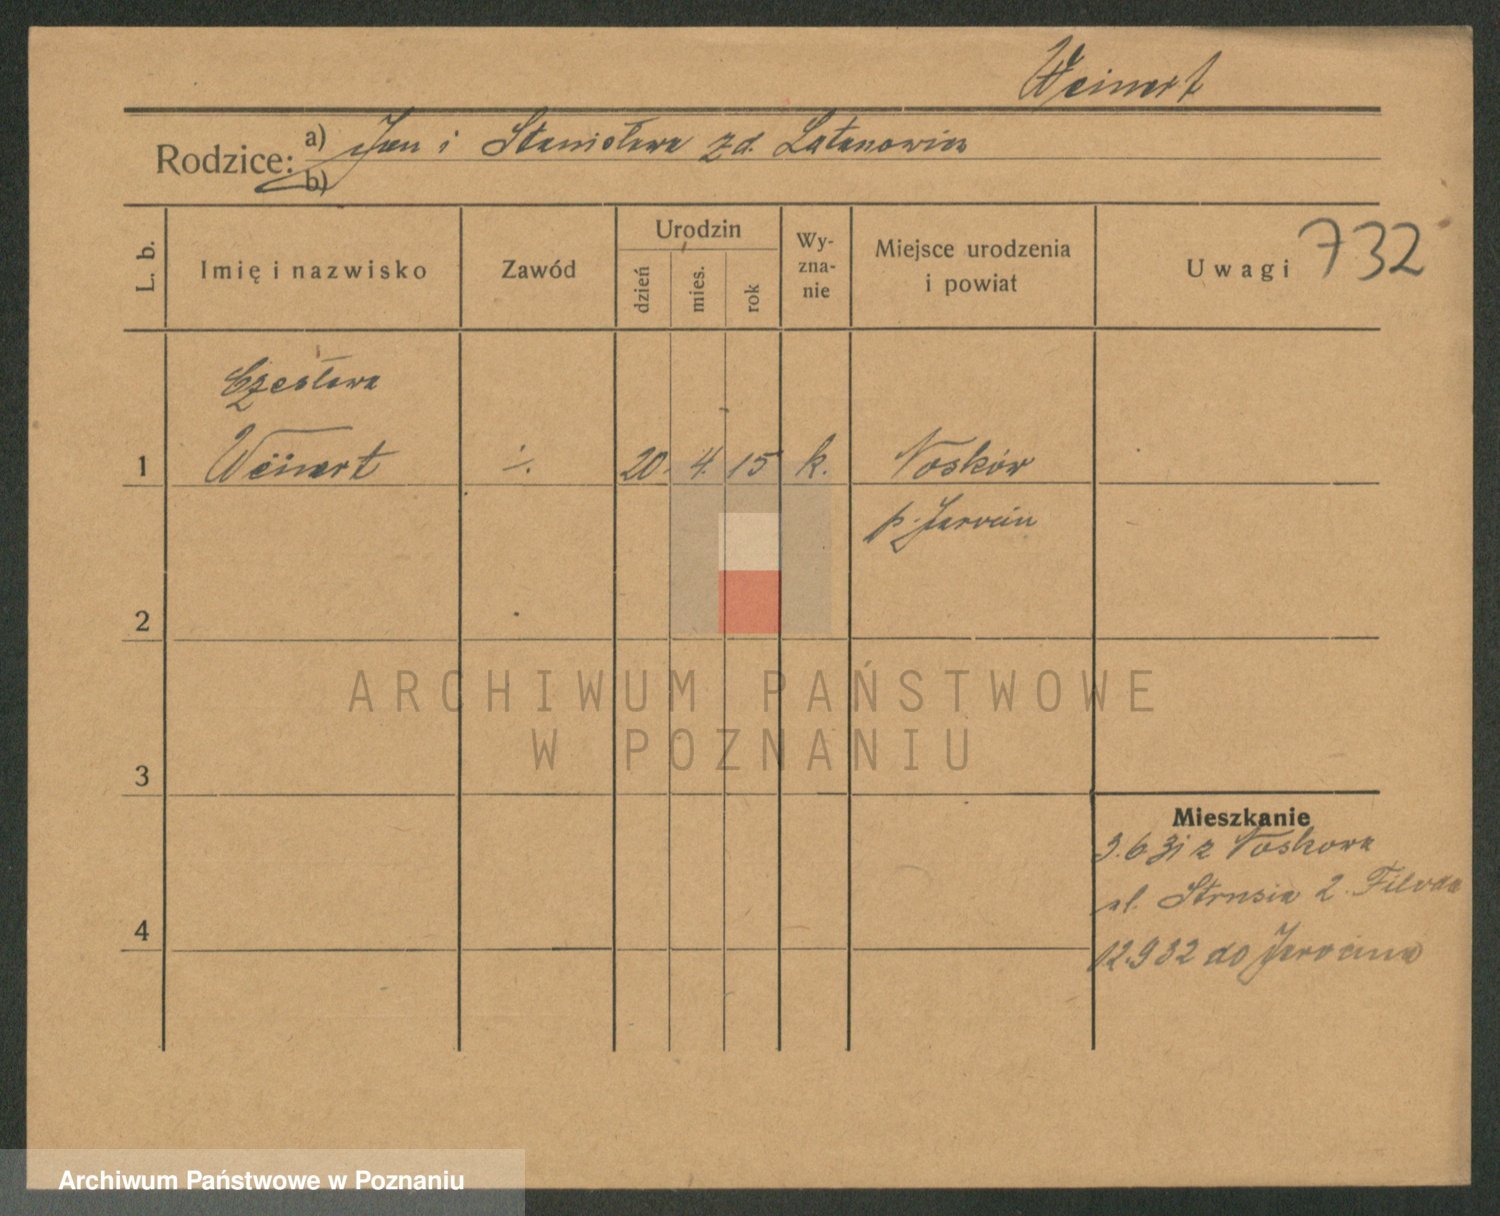 Weinert
Rodzice: a) Jan i Stanisława z d. Latanowicz
b)
L. b.
Imię i nazwisko
Zawód
Urodzin
dzień
mies.
rok
Wy-
zna-
nie
Miejsce urodzenia
i powiat
Uwagi
732
Czesława
1 Weinert ·/. 20. 4. 15 k. Nosków
p. Jarocin
2
ARCHIWUM PAŃSTWOWE
W POZNANIU
3
Mieszkanie
3.6 31 z Noskowa
ul. Strusia 2.
4
12.932 do Jarocina
Archiwum Państwowe w Poznaniu